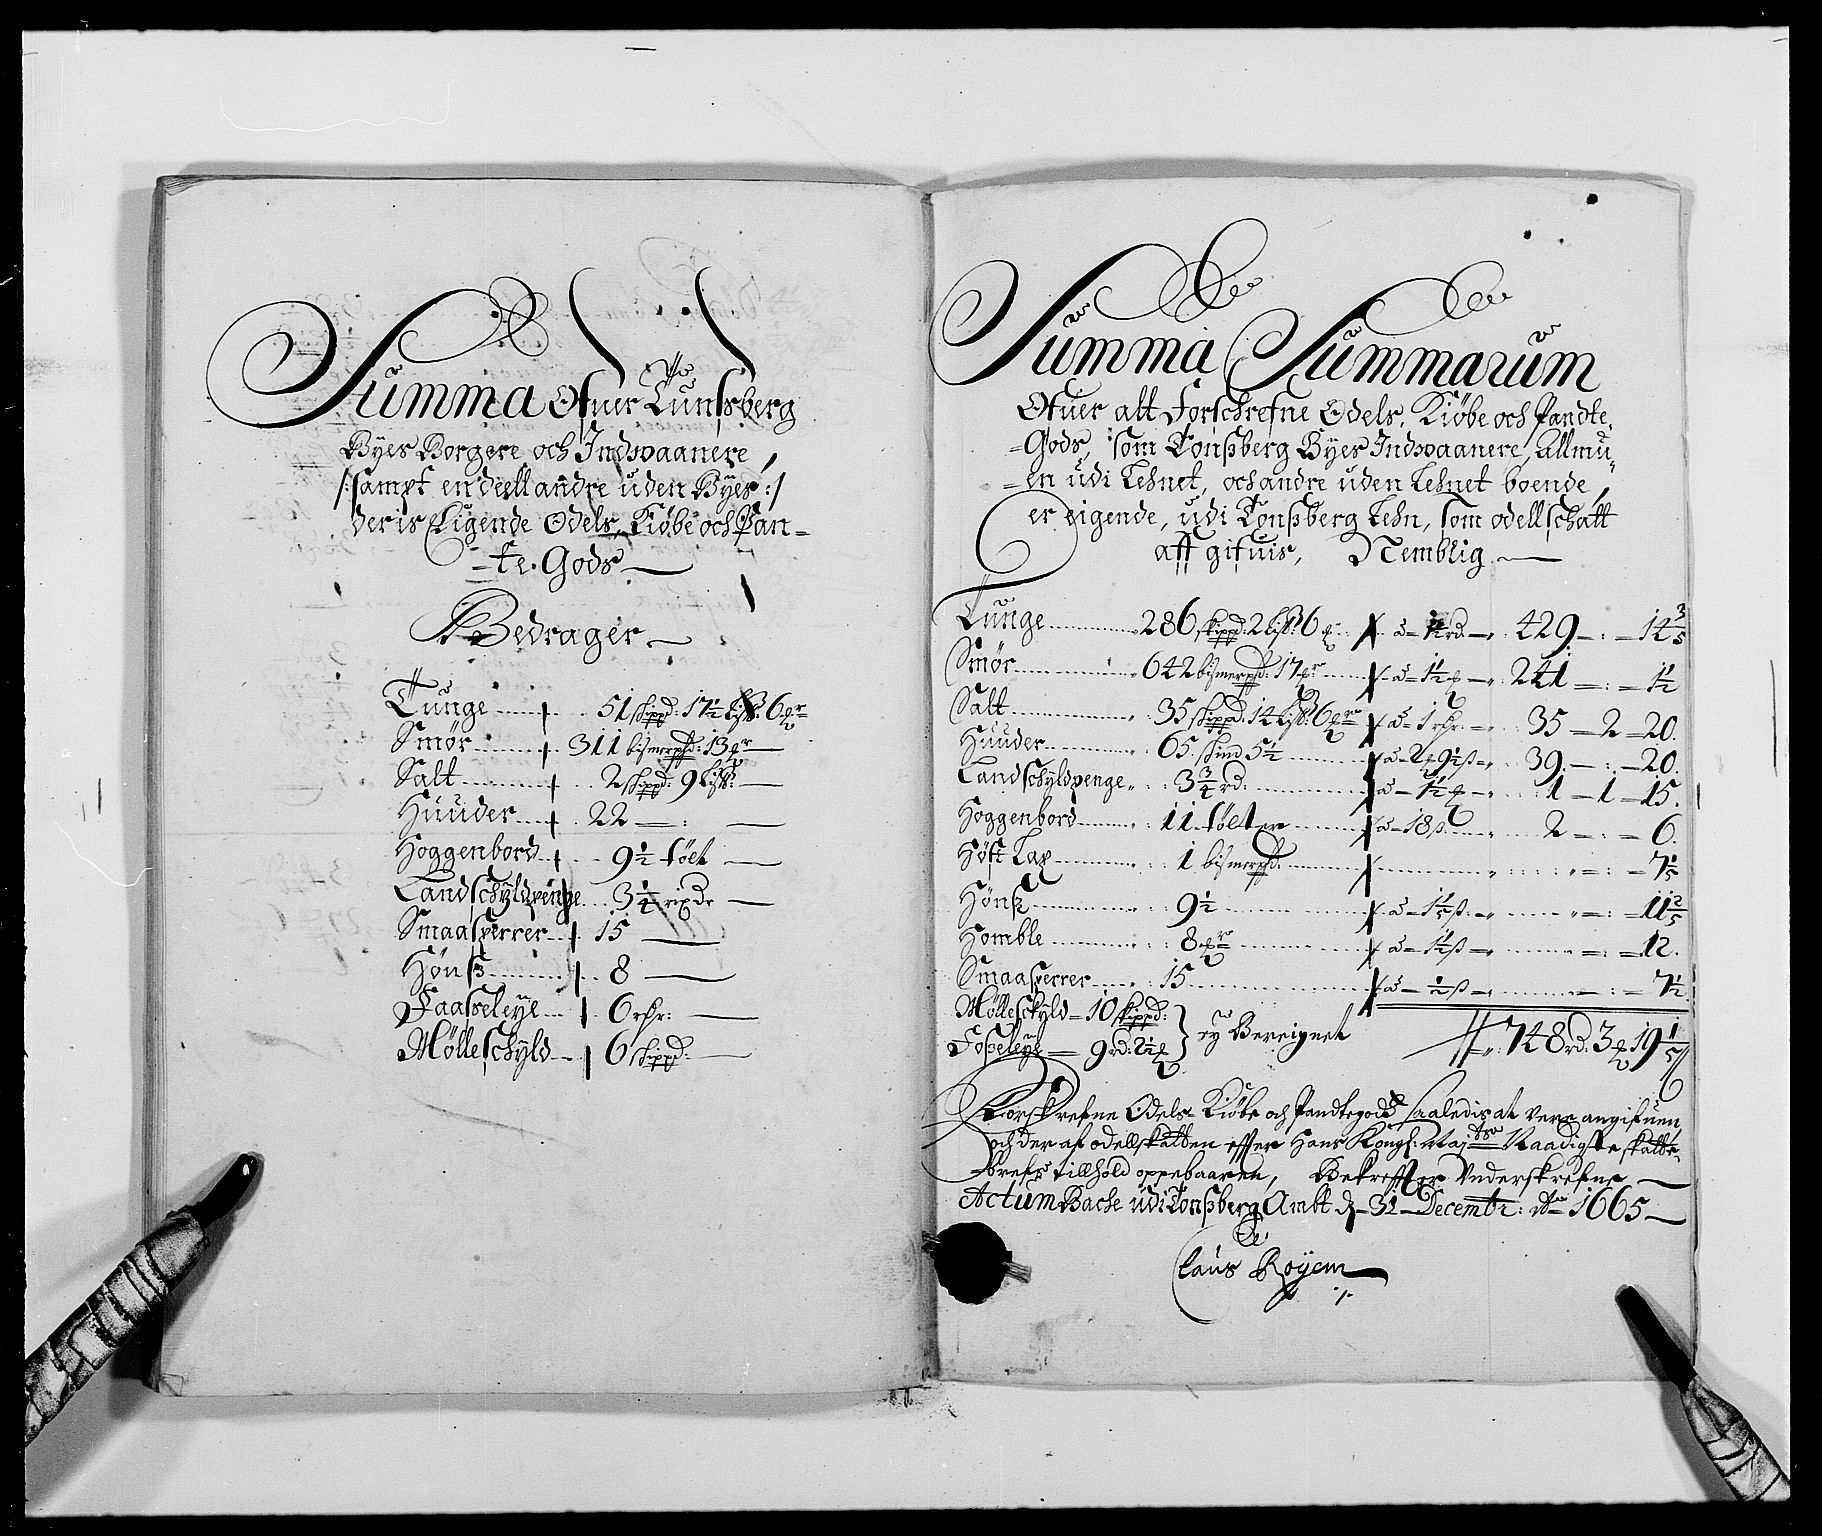 Summa Ofuer Tunsberg
Byes Borgere och Indvaanere,
/:sampt en deell andre uden Byes:/
deris Eigende Odels, Kiøbe och Pan=
=te Gods
Bedrager
Tunge 51 skippd: 17½ lispd: 6 pr
Smør 311 bismerpd: 13 pr
Salt 2 skippd: 9 lispd:
Huuder 22 — : —
Hoggenbord 9½ tølt
Landschyldpenge 3¼ rixdr
Smaasperrer 15
Hønss 8
Faasseleye 6 rdr:
Mølleschyld 6 skippd:
Summa Summarum
Ofuer alt Forschrefne Odels, Kiøbe och Pandte
=Gods, som Tonsberg Byes Indvaanere, Allmu
=en udi Lehnet, och andre uden Lehnet boende,
er eigende, udi Tonsberg Lehn, som odellschatt
aff gifuis, Nemblig
Tunge 286 skippd: 2 lispd: 6 pr à 1½ rd 429 — : — 14 3/5
Smør 642 bismerpd: 17 pr à 1½ 241 — : — 1½
Salt 35 skippd: 14 lispd: 6 pr à 1 rdr 35 — 2 — 20.
Huuder 65 skind 5½ à 2 9½ ß 39 — : — 20.
Landschyldpenge 3¾ rd: à 1½ 1 — 1 — 15.
Hoggenbord 11 tølter à 18 ß 2 — : — 6.
Høst Lax 1 bismerpd — : — 7 1/5
Hønss 9½ à 1 1/5 ß — : — 11 2/5
Homble 8 pr à 1½ ß — : — 12.
Smaasperrer 15 à ½ ß — : — 7½
Mølleschyld — 10 skippd: } ey Beregnet
Fosseleye — 9 rd: 2½ 748 rd: 3 19 1/5
Forskrefne Odels Kiøbe och Pandtegods saaledis at vere angifuen,
och der af odellskatten effter Hans Kongl: Maj Naadigste skatte=
=brefs tillhold oppebaaren, Bekreffter Underskrefne
Actum Bache udi Tonsberg Ambt d 31 Decembr: Ao 1665
Claus Røyem